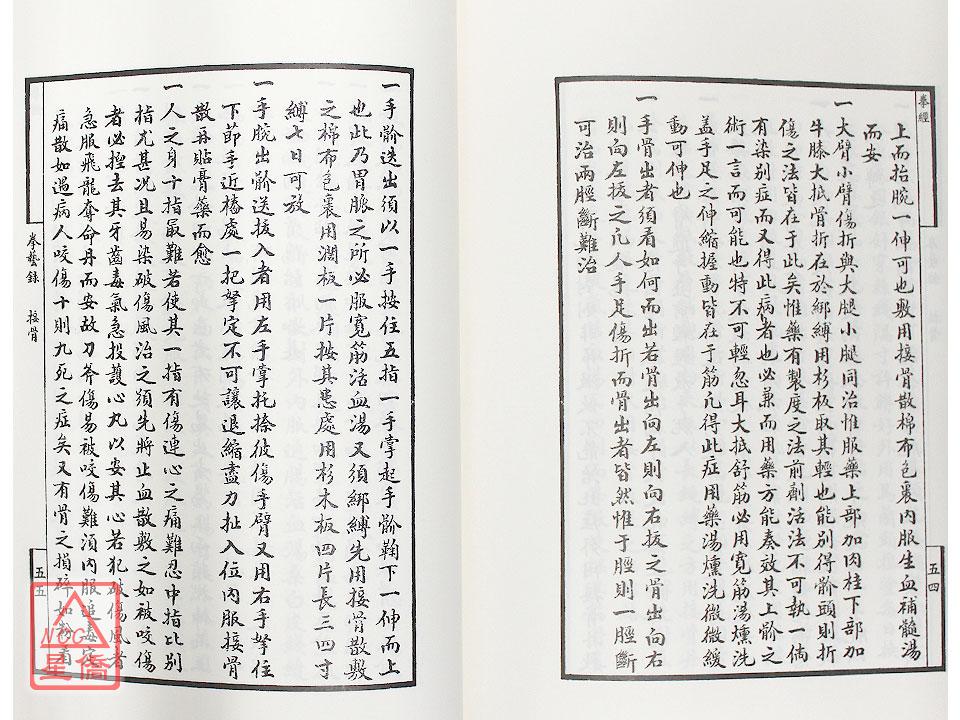 拳經
上而抬腕一伸可也敷用接骨散棉布包裹內服生血補髓湯
而安
一大臂小臂傷折與大腿小腿同治惟服藥上部加肉桂下部加
牛膝大抵骨折在於綁縛用杉板取其輕也能別得骱頭則折
傷之法皆在于此矣惟藥有製度之法前劑活法不可執一倘
有染別症而又得此病者也必兼而用藥方能奏效其上骱之
術一言而可能也特不可輕忽耳大抵舒筋必用寬筋湯燻洗
蓋手足之伸縮握動皆在于筋凡得此症用藥湯燻洗微微緩
動可伸也
一手骨出者須看如何而出若骨出向左則向右拔之骨出向右
則向左拔之凡人手足傷折而骨出者皆然惟于脛則一脛斷
可治兩脛斷難治
五四
一手骱迭出須以一手按住五指一手掌起手骱鞠下一伸而上
也此乃胃脈之所必服寬筋活血湯又須綁縛先用接骨散敷
之棉布包裹用濶板一片按其患處用杉木板四片長三四寸
縛七日可放
一手腕出骱送拔入者用左手掌托捺彼傷手臂又用右手拏住
下節手近樁處一把拏定不可讓退縮盡力扯入位內服接骨
散再貼膏藥而愈
一人之身十指最難若使其一指有傷連心之痛難忍中指比別
指尤甚况且易染破傷風治之須先將止血散敷之如被咬傷
者必捏去其牙齒毒氣急投護心丸以安其心若犯破傷風者
急服飛龍奪命丹而安故刀斧傷易被咬傷難須內服追毒定
痛散如過病人咬傷十則九死之症矣又有骨之損碎如粉者
拳藝錄 接骨
五五
NCC
星僑